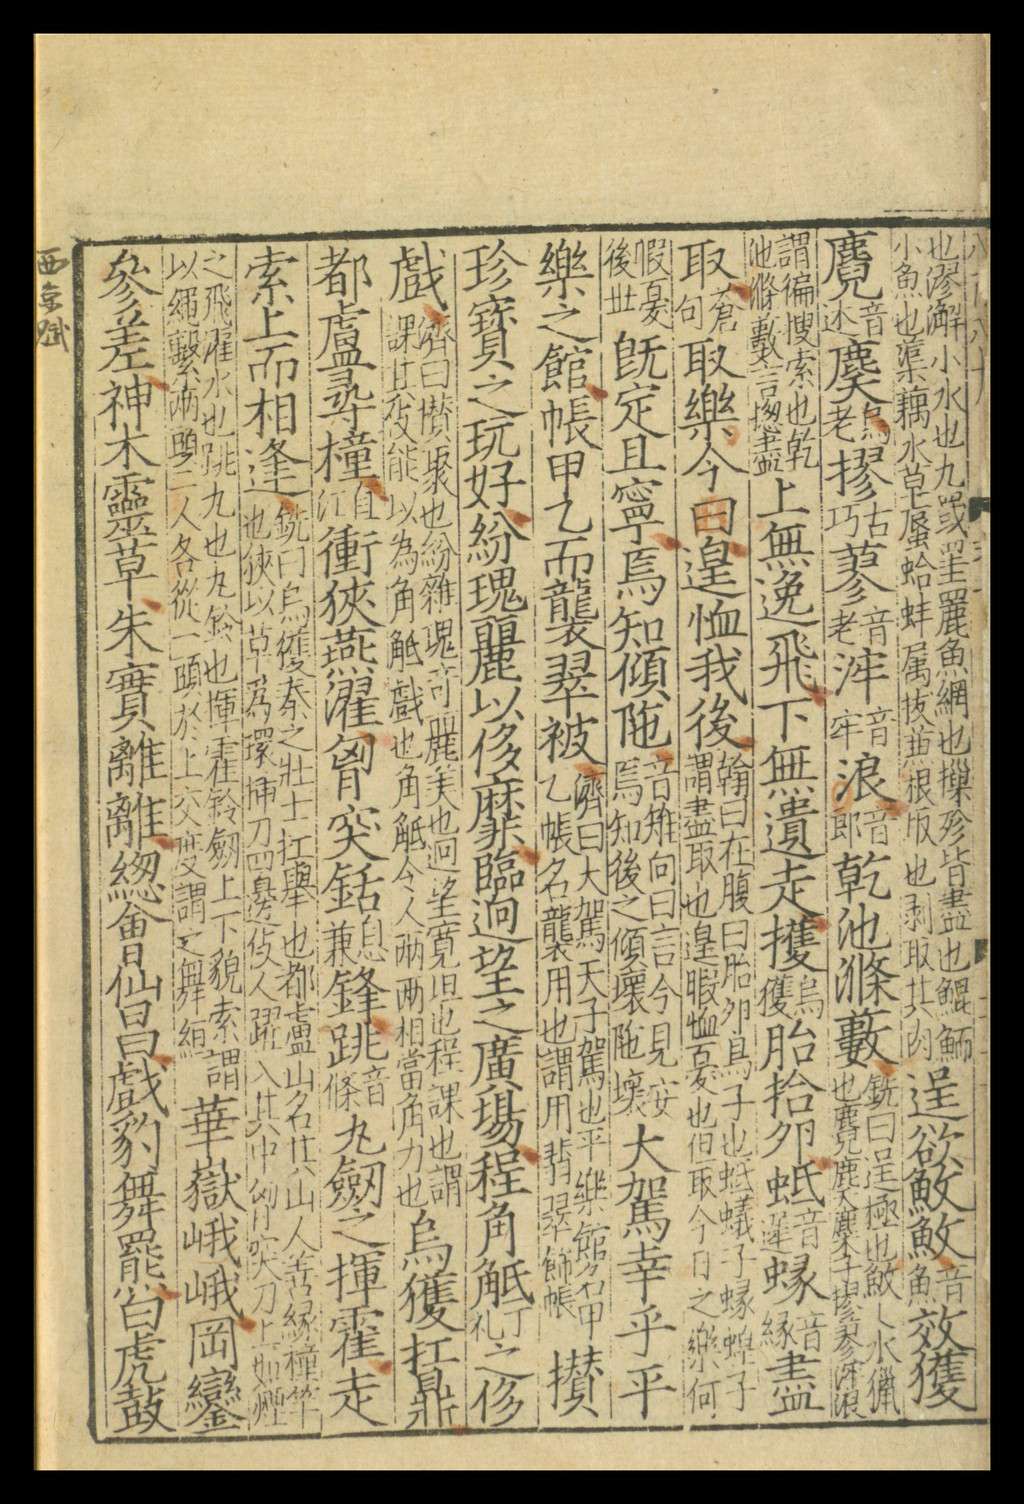 也漻澥小水也九罭罜麗魚網也摷殄皆盡也鯤鮞
小魚也蕖藕水草蜃蛤蚌属拔芾根版也剥取其肉
逞欲畋𩼈音魚效獲
麑音迷麌烏老摎古巧蓼音老浡音牢浪音郎乾池滌藪
銑曰逞極也𩼈水獵
也麑鹿子麌麋子摎蓼浡浪
謂徧搜索也乾
池滌藪言揔盡
上無逸飛下無遺走擭烏獲胎拾卵蚳音遲蝝音緣盡
取蒼句取樂今日遑恤我後
翰曰在腹曰胎卵鳥子也蚳蟻子蝝蝗子
謂盡取也遑暇恤憂也但取今日之樂何
暇憂
後世
旣定且寧焉知傾陁
音雉向曰言今見安
焉知後之傾壞陁壞
大駕幸乎平
樂之館帳甲乙而襲翠被
濟曰大駕天子駕也平樂館名甲
乙帳名襲用也謂用翡翠飾帳
攅
珍寶之玩好紛瑰麗以侈靡臨迥望之廣場程角觝丁礼之侈
戲
濟曰攅聚也紛雜瑰奇麗美也迥望寛坦也程課也謂
課其伎能以為角觝戲也角觝今人兩兩相當角力也
烏獲扛鼎
都盧尋橦直江衝狹燕濯匈突銛息兼鋒跳音條丸劔之揮霍走
索上而相逢
銑曰烏獲秦之壯士扛舉也都盧山名其山人善緣橦竿
也狹以草為環揷刀四邊伎人躍入其中匈突刀上如燕
之飛濯水也跳丸也丸鈴也揮霍鈴劔上下貌索謂
以繩繫兩頭二人各從一頭於上交度謂之舞絙
華嶽峨峨岡巒
參差神木靈草朱實離離緫㑹仙昌戲豹舞罷白虎鼓
西京賦